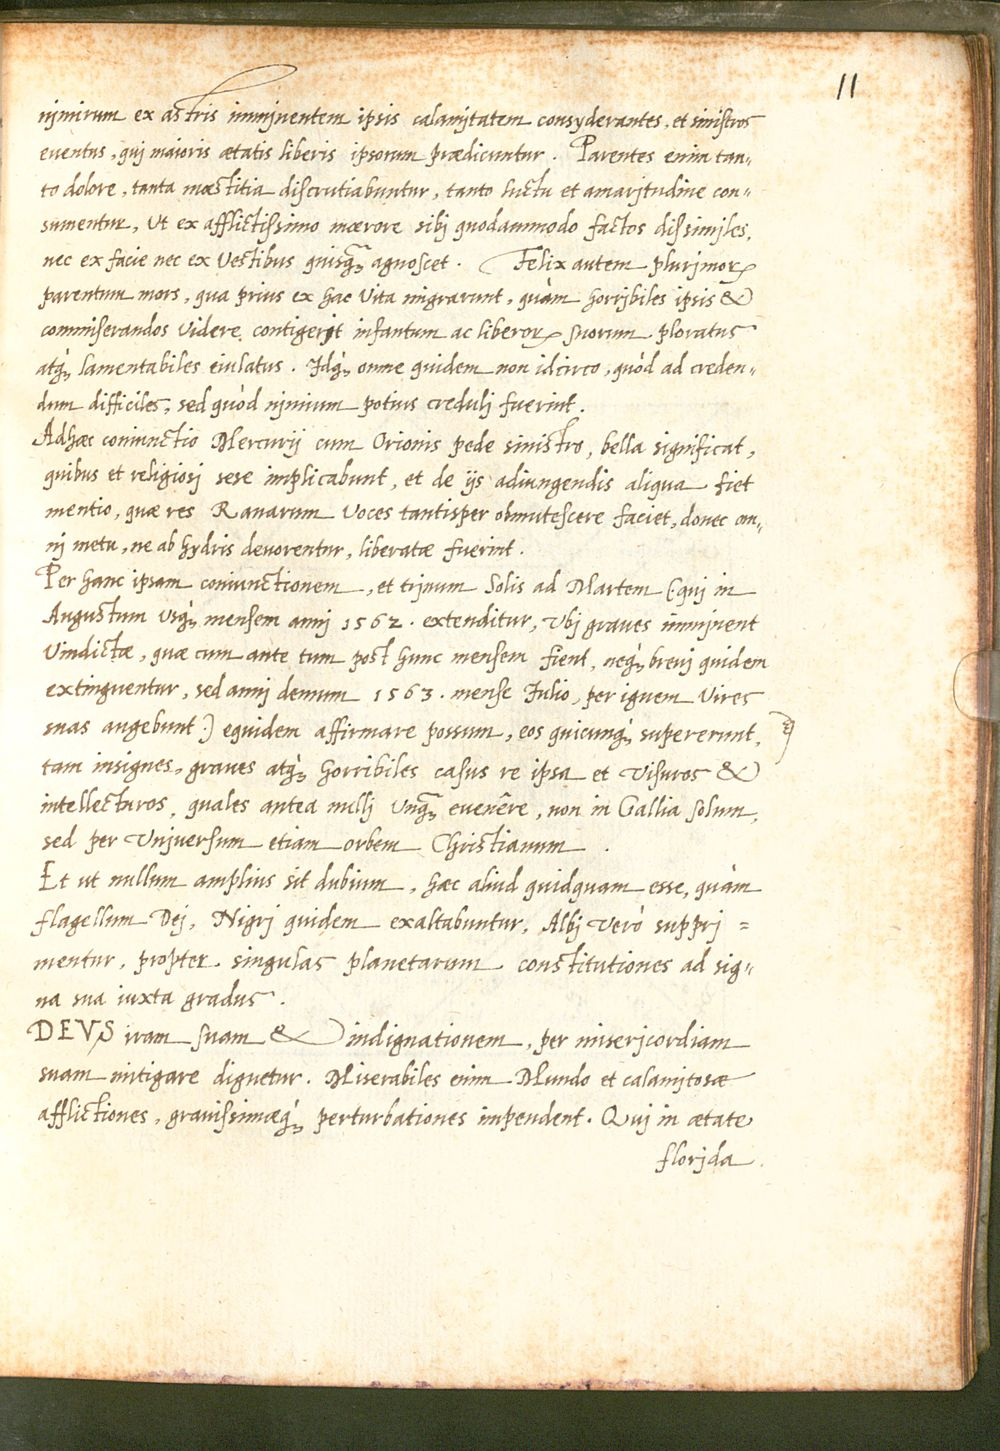 11
nimirum ex astris imminentem ipsis calamitatem consyderantes, et sinistros
euentus, qui maioris ætatis liberis ipsorum prædicuntur. Parentes enim tan„
to dolore, tanta mœstitia discrutiabuntur, tanto luctu et amaritudine con„
sumentur, vt ex afflictissimo mærore sibi quodammodo factos dissimiles,
nec ex facie nec ex vestibus quisq̃ʒ agnoscet. Felix autem plurimorꝝ
parentum mors, qua prius ex hac vita migrarunt, quàm horribiles ipsis &
commiserandos videre contigerit infantum ac liberorꝝ suorum ploratus
atqʒ́ lamentabiles eiulatus. Idqʒ́ omne quidem non idcirco, quòd ad creden„
dum difficiles, sed quòd nimium potius creduli fuerint.
Adhæc coniunctio Mercurij cum Orionis pede sinistro, bella significat,
quibus et religiosi sese implicabunt, et de ijs adiungendis aliqua fiet
mentio, quæ res Ranarum voces tantisper obmutescere faciet, donec om„
ni metu, ne ab hydris deuorentur, liberatæ fuerint.
Per hanc ipsam coniunctionem, et trinum Solis ad Martem (qui in
Augustum vsqʒ́ mensem anni 1562. extenditur, vbi graues imminent
vindictæ, quæ cum ante tum post hunc mensem fient, neqʒ́ breui quidem
extinguentur, sed anni demum 1563. mense Iulio, per ignem vires
suas augebunt.) equidem affirmare possum, eos quicunqʒ́ supererunt,
tam insignes, graues atqʒ́ horribiles casus re ipsa et visuros &
intellecturos, quales antea nulli vnq̃ʒ euenêre, non in Gallia solum,
sed per vniuersum etiam orbem Christianum.
Et ut nullum amplius sit dubium, hæc aliud quidquam esse, quàm
flagellum Dei, Nigri quidem exaltabuntur, Albi verò suppri =
mentur, propter singulas planetarum constitutiones ad sig„
na sua iuxta gradus.
DEVS iram suam & indignationem, per misericordiam
suam mitigare dignetur. Miserabiles enim Mundo et calamitosæ
afflictiones, grauissimæqʒ́ perturbationes impendent. Qui in ætate
florida